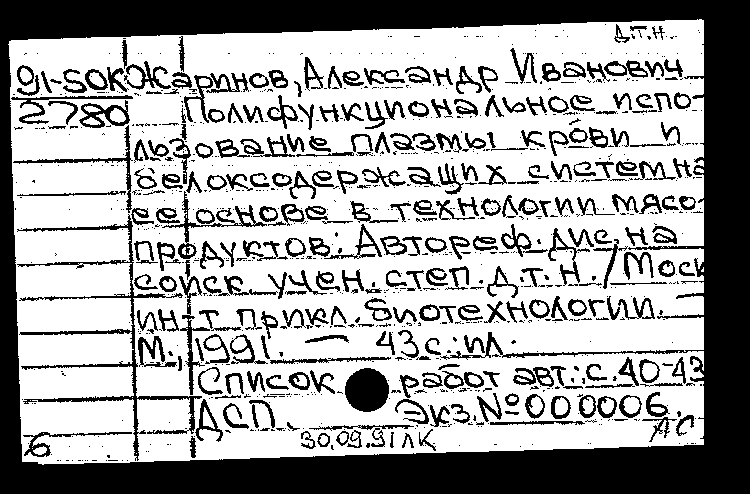 Д.Т.Н.
91-5ОК Жаринов, Александр Иванович
2780 Полифункциональное испо-
льзование плазмы крови и
белоксодержащих систем на
ее основе в технологии мясо-
продуктов: Автореф. дис. на
соиск. учен. степ. д.т.н. / Моск
ин-т прикл. биотехнологии. —
М., 1991. — 43 с.: ил.
Список работ авт.: с. 40-43
ДСП. Экз. № 000006.
6 30.09.91 ЛК АС